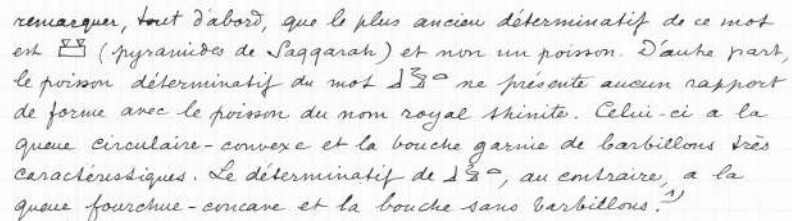 remarquer, tout d'abord, que le plus ancien déterminatif de ce mot
est (pyramides de Saqqarah) et non un poisson. D'autre part,
le poisson déterminatif du mot ne présente aucun rapport
de forme avec le poisson du nom royal thinite. Celui-ci a la
queue circulaire-convexe et la bouche garnie de barbillons très
caractéristiques. Le déterminatif de , au contraire, a la
queue fourchue-concave et la bouche sans barbillons. 1)